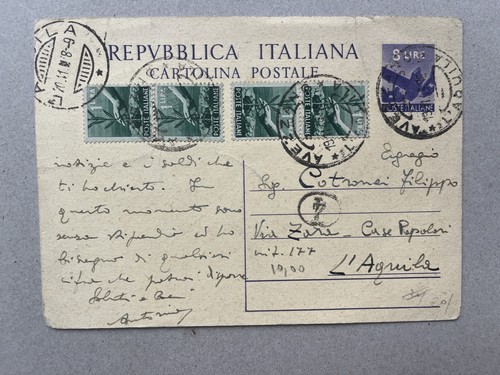 REPVBBLICA ITALIANA
CARTOLINA POSTALE
8 LIRE
POSTE ITALIANE
POSTE ITALIANE
POSTE ITALIANE
POSTE ITALIANE
POSTE ITALIANE
notizie e i soldi che
ti ho chiesto. In
questo momento sono
senza stipendio ed ho
bisogno di qualsiasi
cifra che potresti disporre
Saluti e baci
Antonio
Egregio
Sig. Cotronei Filippo
Via Zara - Case Popolari
int. 177
10,00
L'Aquila